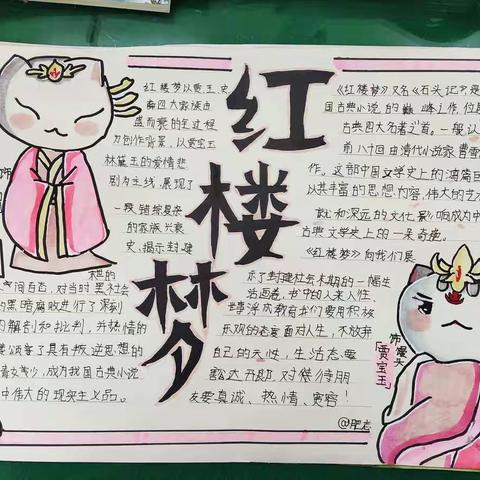 红楼梦
红楼梦以贾、王、史
薛四大家族由
盛而衰的全过程
为创作背景，以贾宝玉
林黛玉的爱情悲
剧为主线，展现了
一段错综复杂
的家族兴衰
史，揭示封建
气间百态，对当时黑社会
的黑暗腐败进行了深刻
的解剖和批判，并热情的
颂客了具有叛逆思想的
青女青少，成为我国古典小说
中伟大的现实主义品。
《红楼梦》又名《石头记》是
国古典小说的巅峰之作，位居
古典四大名著之首。一般认
前八十回由清代小说家曹雪
作。这部中国文学史上的鸿篇巨
以其丰富的思想内容，伟大的艺
就和深远的文化影响成为中
古典文学史上的一朵奇葩。
《红楼梦》向我们展
示了封建社会末期的一幅生
活画卷，书中的人来人性、
情淳为教育我们要用积极
乐观的态度面对人生，不放弃
自己的天性，生活态
豁达开朗，对待待朋
友要真诚、热情、宽容！
@肥志
饰馒头
「贾宝玉」
饰